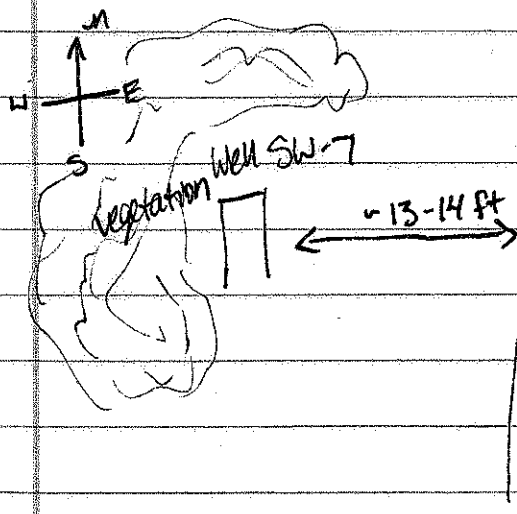 N
W E
S
Vegetation
Well SW-7
~13-14 ft